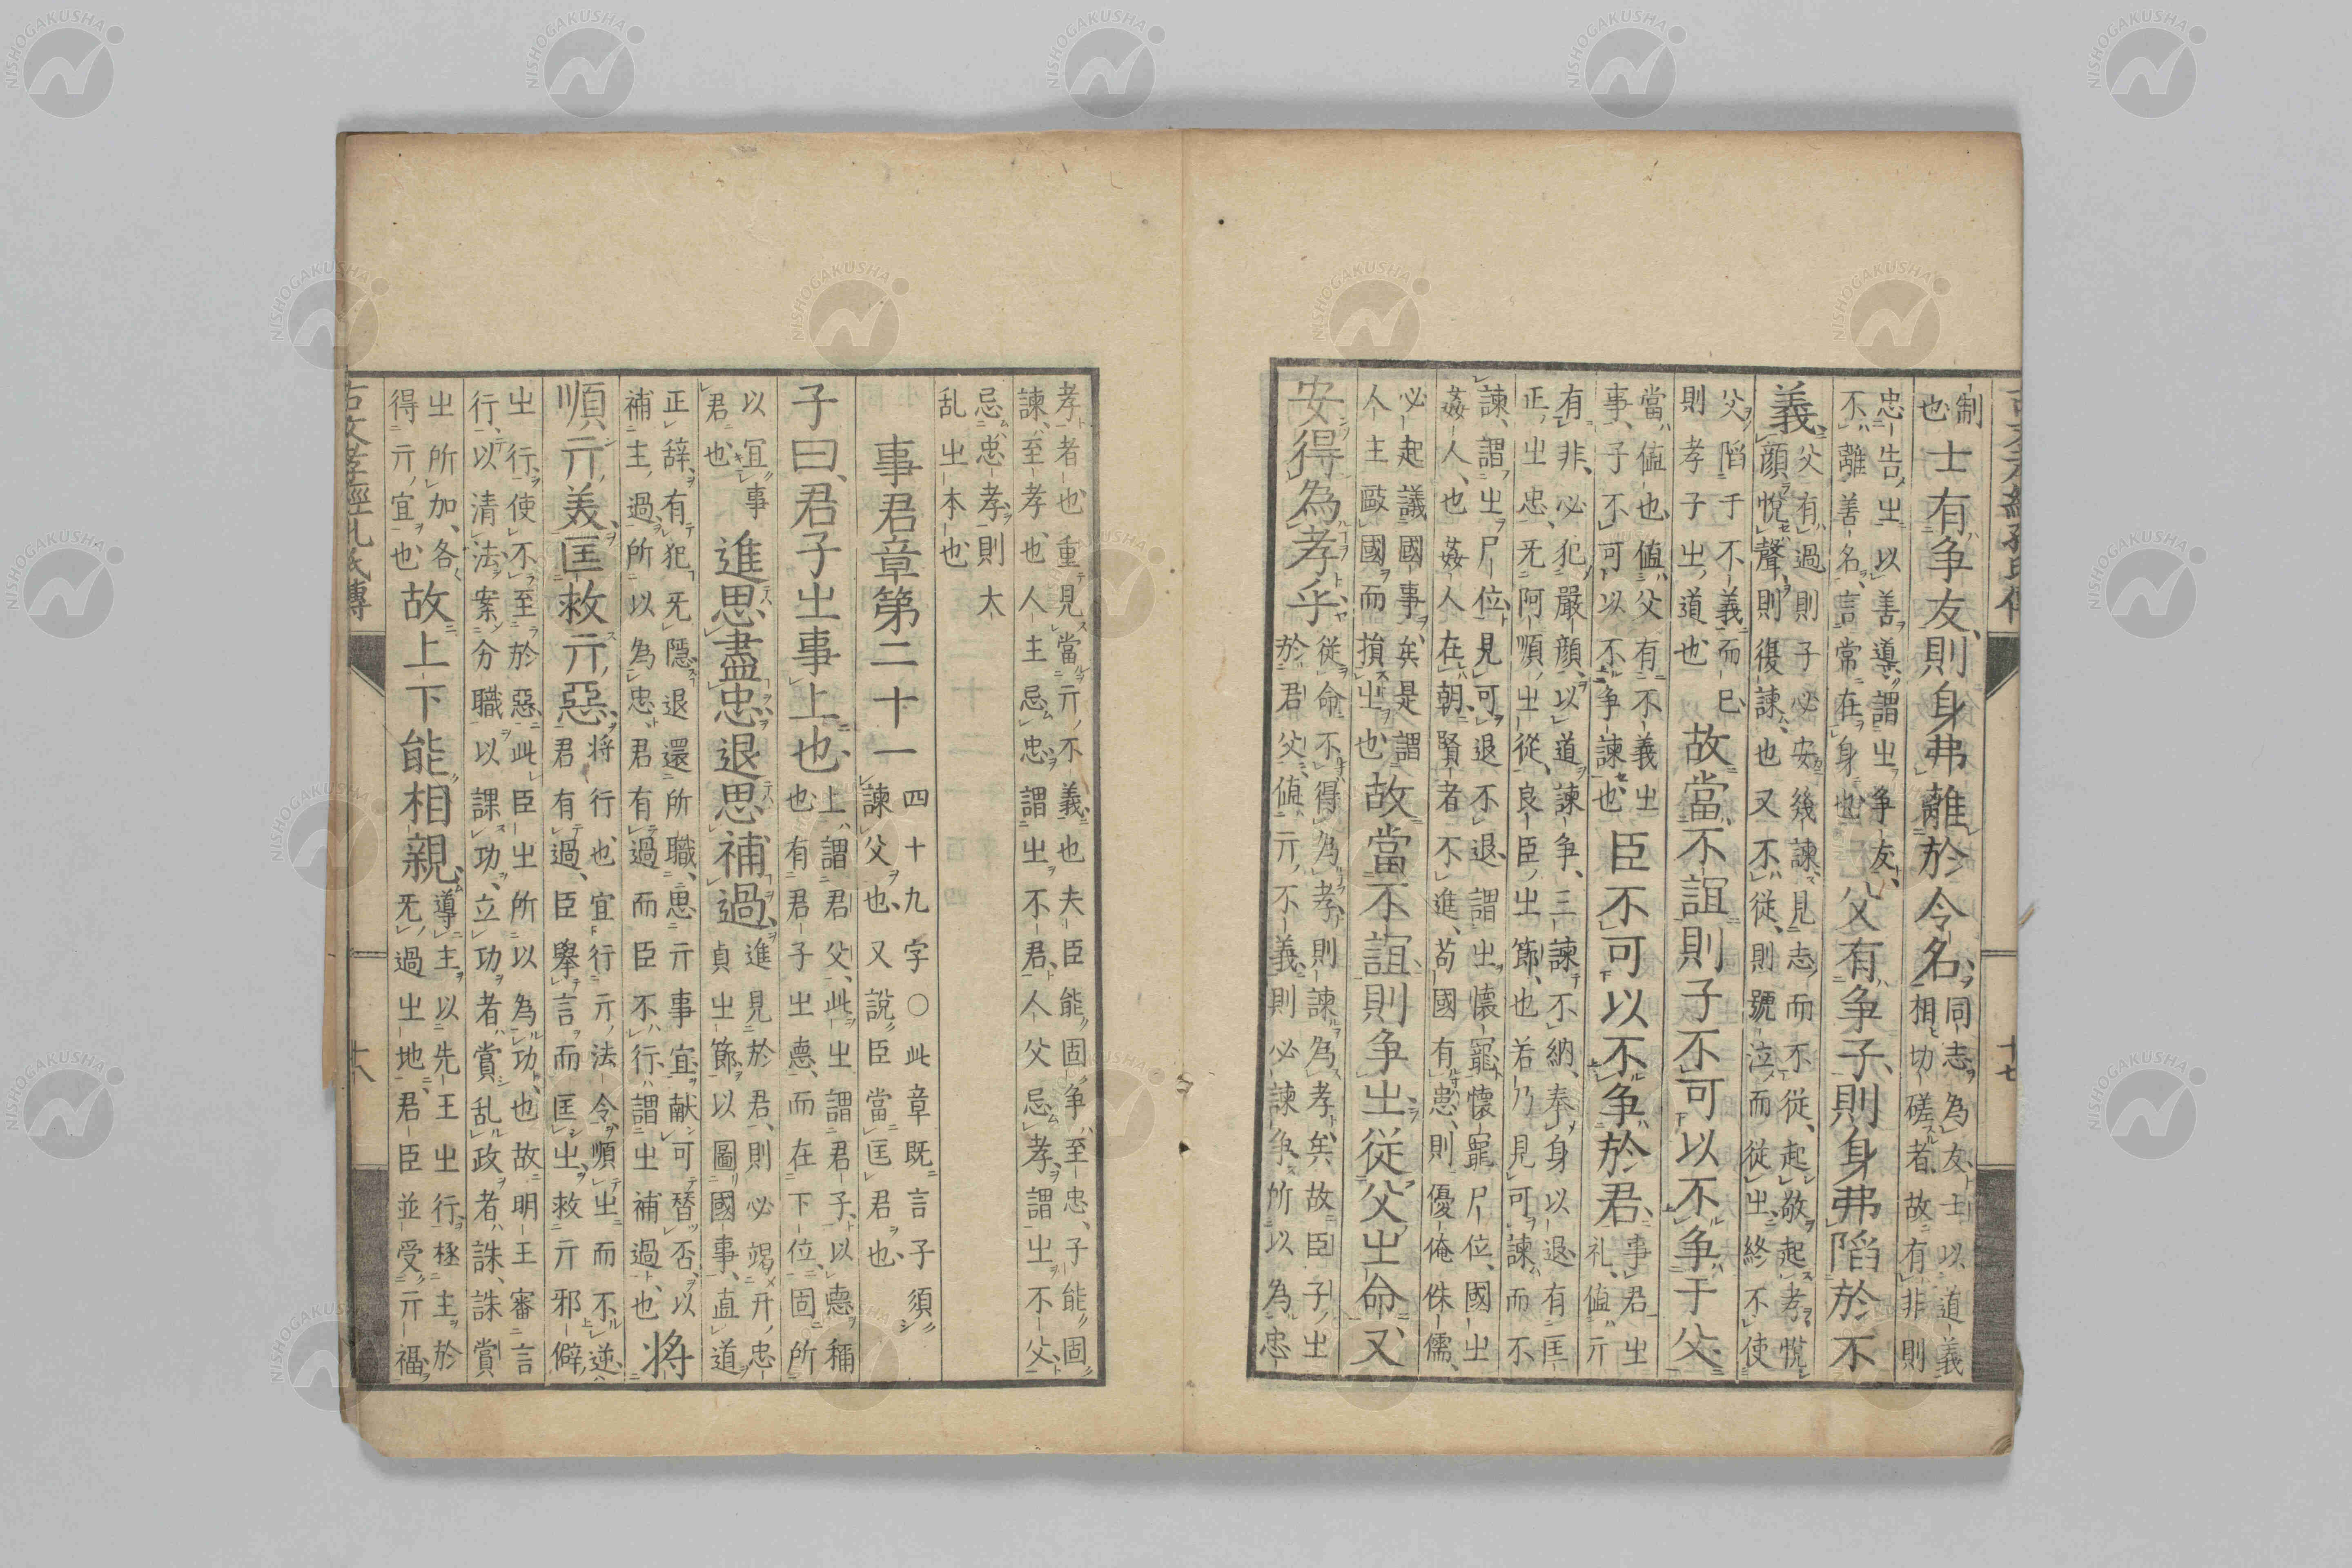 十七
制
也
士有争友、則身弗離於令名、
同志為友士以道義
相切磋者故有非則
忠告㞢以善導謂㞢争友
不離善名言常在身也
父有争子、則身弗陷於不
義、
父有過則子必安幾諫見志而不從起敬起孝悅
顏悅聲則復諫也又不從則號泣而從㞢終不使
父陷于不義而已
則孝子㞢道也
故當不誼則子不可以不争于父、
當値也値父有不義㞢
事子不可以不争諫也
臣不可以不争於君、
事君㞢
礼値亓
有非必犯嚴顏以道諫争三諫不納奉身以退有匡
正㞢忠旡阿順㞢從良臣㞢節也若乃見可諫而不
諫謂㞢尸位見可退不退謂㞢懷寵懷寵尸位國㞢
姦人也姦人在朝賢者不進苟國有患則優俺侏儒
必起議國事矣是謂
人主敺國而損㞢也
故當不誼則争㞢從父㞢命又
安得為孝乎
從命不得為孝則諫為孝矣故臣子㞢
於君父値亓不義則必諫争所以為忠
孝者也重見當亓不義也夫臣能固争至忠子能固
諫至孝也人主忌忠謂㞢不君人父忌孝謂㞢不父
忌忠孝則大
乱㞢本也
事君章第二十一
四十九字○此章既言子須
諫父也又說臣當匡君也
子曰、君子㞢事上也、
上謂君父此㞢謂君子以悳稱
也有君子㞢悳而在下位固所
以宜事
君也
進思盡忠、退思補過、
進見於君則必竭亓忠
貞㞢節以圖國事直道
正辞有犯旡隱退還所職思亓事宜献可替否以
補主過所以為忠君有過而臣不行謂㞢補過也
将
順亓美、匡救亓惡、
将行也宜行亓法令順㞢而不逆
君有過臣擧言而匡㞢救亓邪僻
㞢行使不至於惡此臣㞢所以為功也故明王審言
行以清法案分職以課功立功者賞乱政者誅誅賞
㞢所加各
得亓宜也
故上下能相親、
導主以先王㞢行極主於
旡過㞢地君臣並受亓福
古文孝經孔氏傳